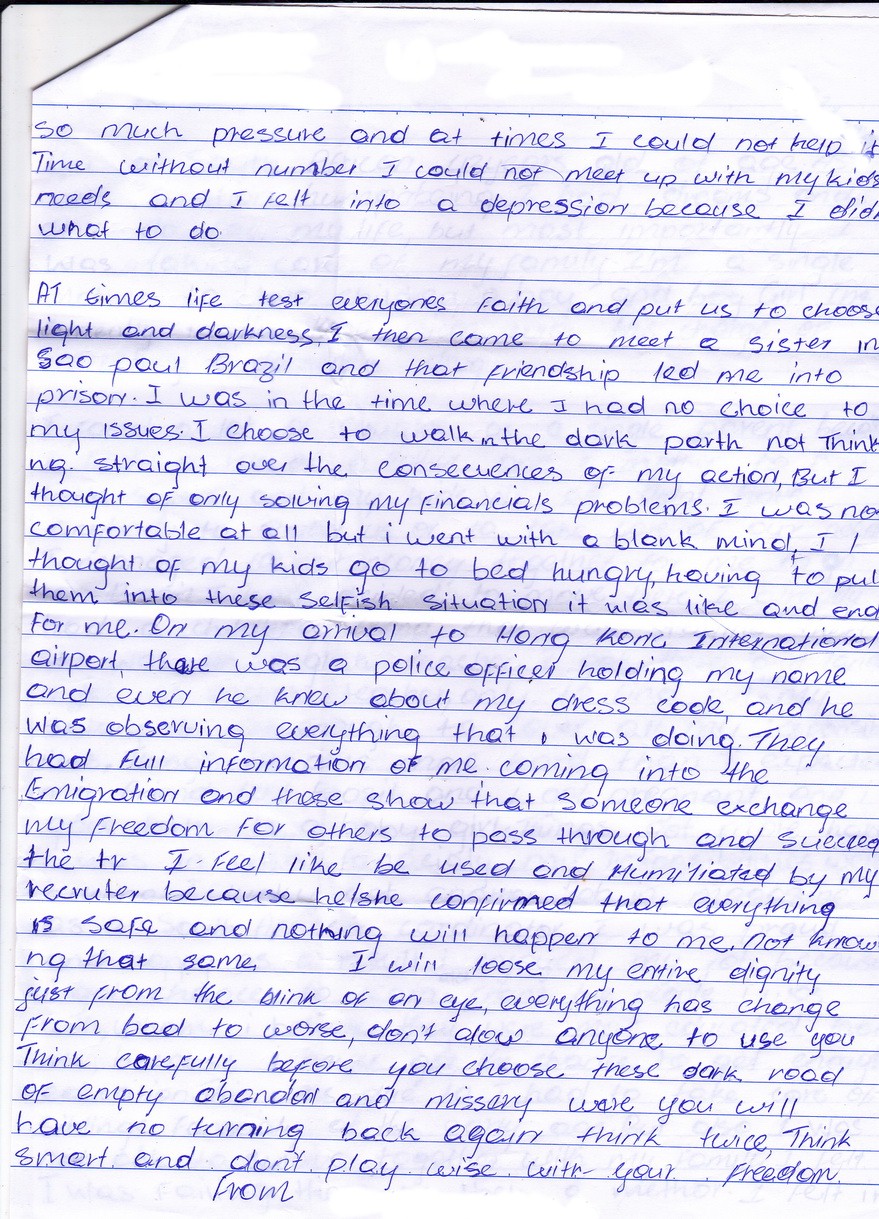 so much pressure and at times I could not help it
Time without number I could not meet up with my kids
needs and I felt into a depression because I didn
what to do.
AT times life test everyones Faith and put us to choose
light and darkness, I then came to meet a sister in
Sao paul Brazil and that friendship led me into
prison. I was in the time where I had no choice to
my issues. I choose to walk in the dark parth not Think
ng. straight over the consecuences of my action, But I
thought of only solving my financials problems. I was no
comfortable at all but i went with a blank mind, I
thought of my kids go to bed hungry, having to pul
them into these selfish situation it was like and end
For me. On my arrival to Hong Kong International
airport, there was a police officer holding my name
and even he knew about my dress code and he
was observing everything that i was doing. They
had full information of me coming into the
Emigration and these show that someone exchange
my freedom for others to pass through and succeed
the tr I feel like be used and Humiliated by my
recruter because he/she confirmed that everything
is safe and nothing will happen to me, not know
ng that same I will loose my entire dignity
just from the blink of an eye, everything has change
from bad to worse, don't alow anyone to use you
Think carefully before you choose these dark road
of empty abandon and missery were you will
have no turning back again think twice, Think
smart. and. don't. play wise. with your. Freedom.
From